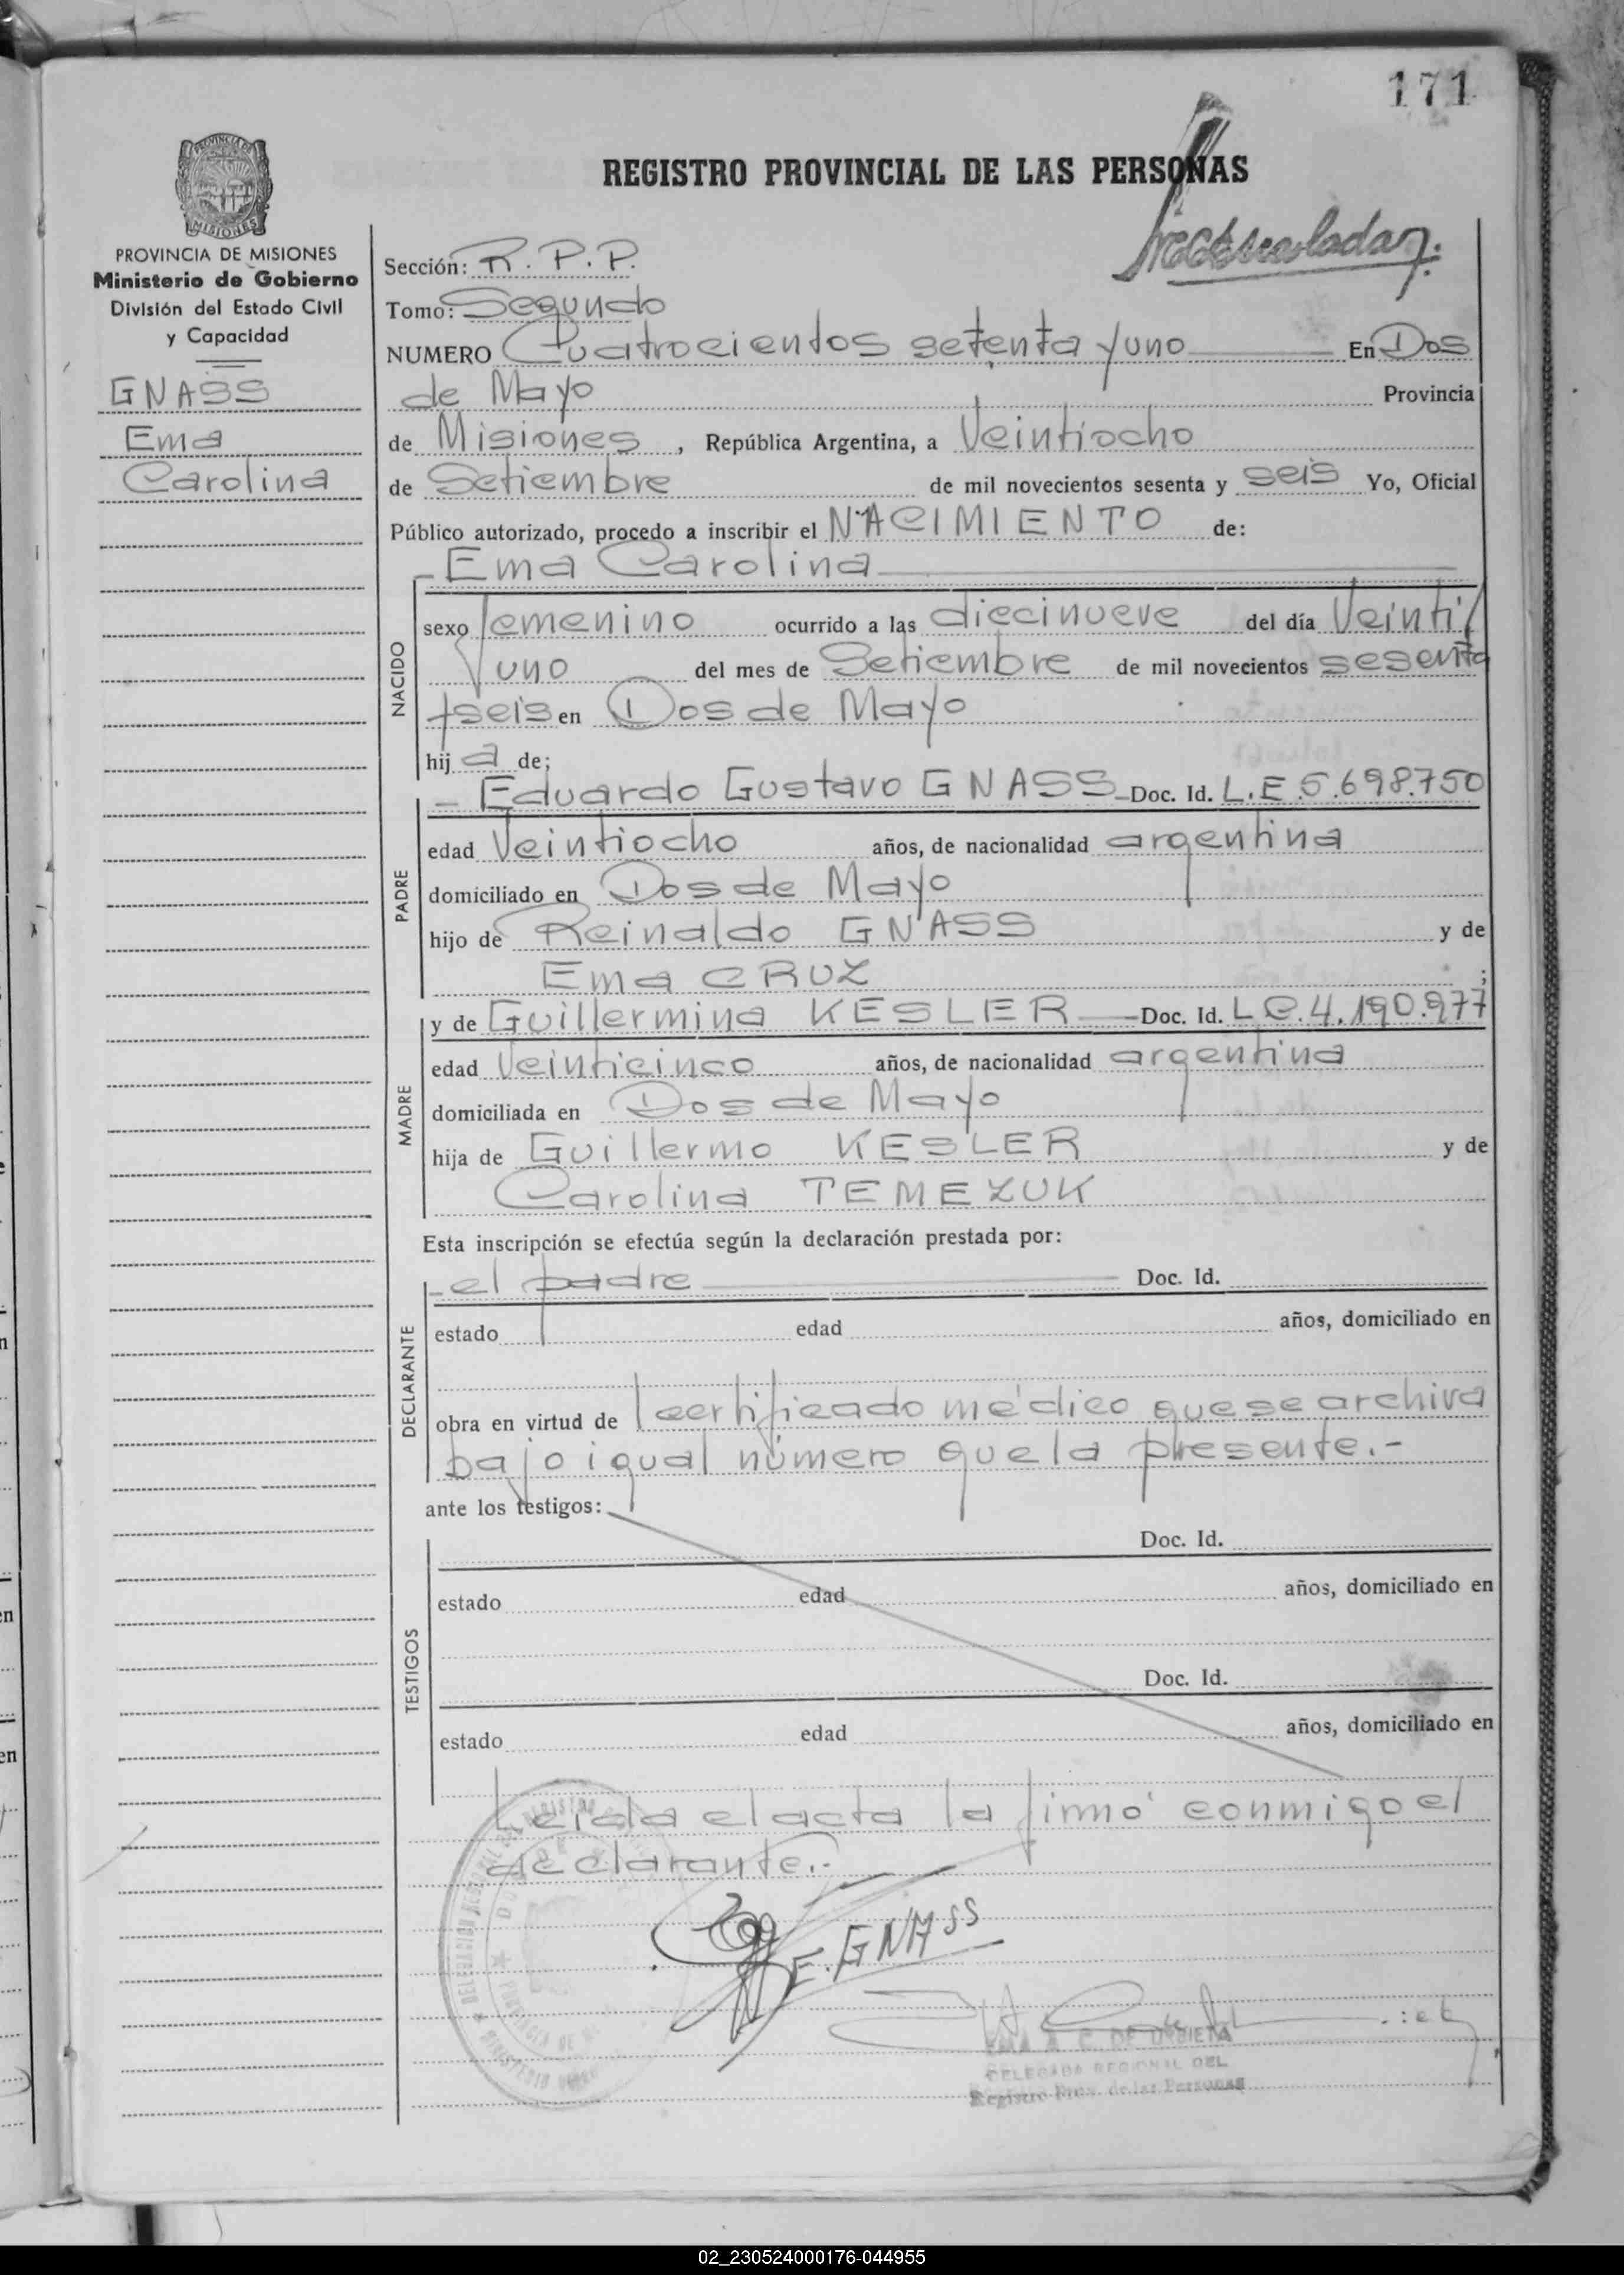 171
REGISTRO PROVINCIAL DE LAS PERSONAS
PROVINCIA DE MISIONES
Ministerio de Gobierno
División del Estado Civil
y Capacidad
GNASS
Ema
Carolina
Sección: R. P. P.
Tomo: Segundo
NUMERO Cuatrocientos setenta y uno En Dos
de Mayo Provincia
de Misiones, República Argentina, a Veintiocho
de Setiembre de mil novecientos sesenta y seis Yo, Oficial
Público autorizado, procedo a inscribir el NACIMIENTO de:
Ema Carolina
NACIDO
sexo femenino ocurrido a las diecinueve del día Veinti
uno del mes de Setiembre de mil novecientos sesenta
y seis en Dos de Mayo
hij a de;
PADRE
Eduardo Gustavo GNASS Doc. Id. L.E 5.698.750
edad Veintiocho años, de nacionalidad argentina
domiciliado en Dos de Mayo
hijo de Reinaldo GNASS y de
Ema CRUZ ;
MADRE
y de Guillermina KESLER Doc. Id. L C. 4.190.977
edad Veinticinco años, de nacionalidad argentina
domiciliada en Dos de Mayo
hija de Guillermo KESLER y de
Carolina TEMEZUK
Esta inscripción se efectúa según la declaración prestada por:
DECLARANTE
el padre Doc. Id.
estado edad años, domiciliado en
obra en virtud de certificado médico que se archiva
bajo igual número que la presente.-
ante los testigos:
TESTIGOS
Doc. Id.
estado edad años, domiciliado en
Doc. Id.
estado edad años, domiciliado en
Leida el acta la firmó conmigo el
declarante.-
E. GNASS
C. DE URBIETA
DELEGADA REGIONAL DEL
Registro Prov. de las Personas
02_230524000176-044955